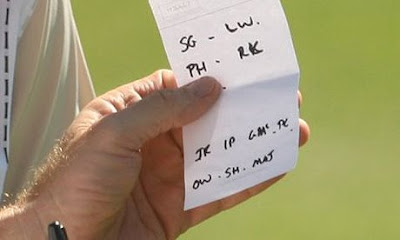 SG - LW.
PH - RK
IP GMC.
OW. SH. MAJ